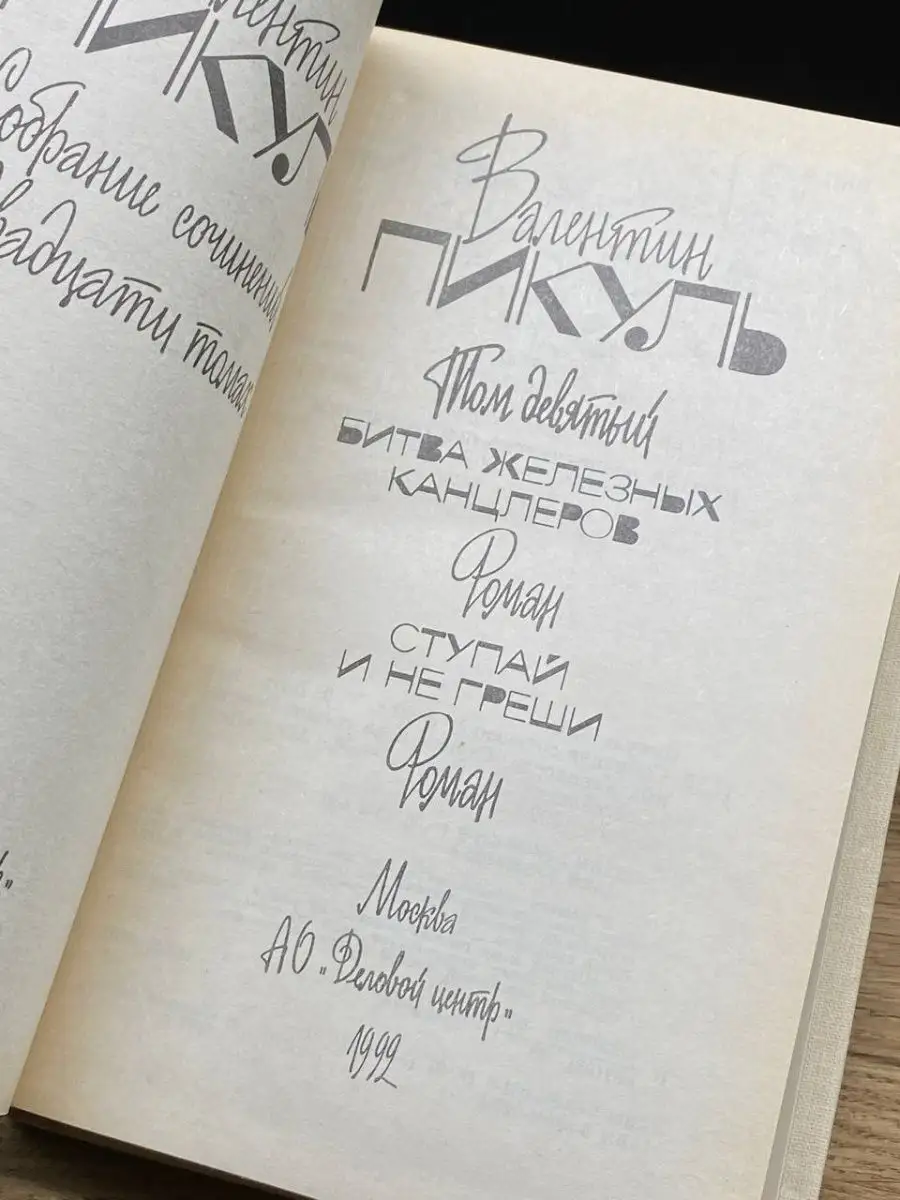 Собрание сочинений
томах
Валентин
ПИКУЛЬ
Том девятый
БИТВА ЖЕЛЕЗНЫХ
КАНЦЛЕРОВ
Роман
СТУПАЙ
И НЕ ГРЕШИ
Роман
Москва
АО „Деловой центр"
1992